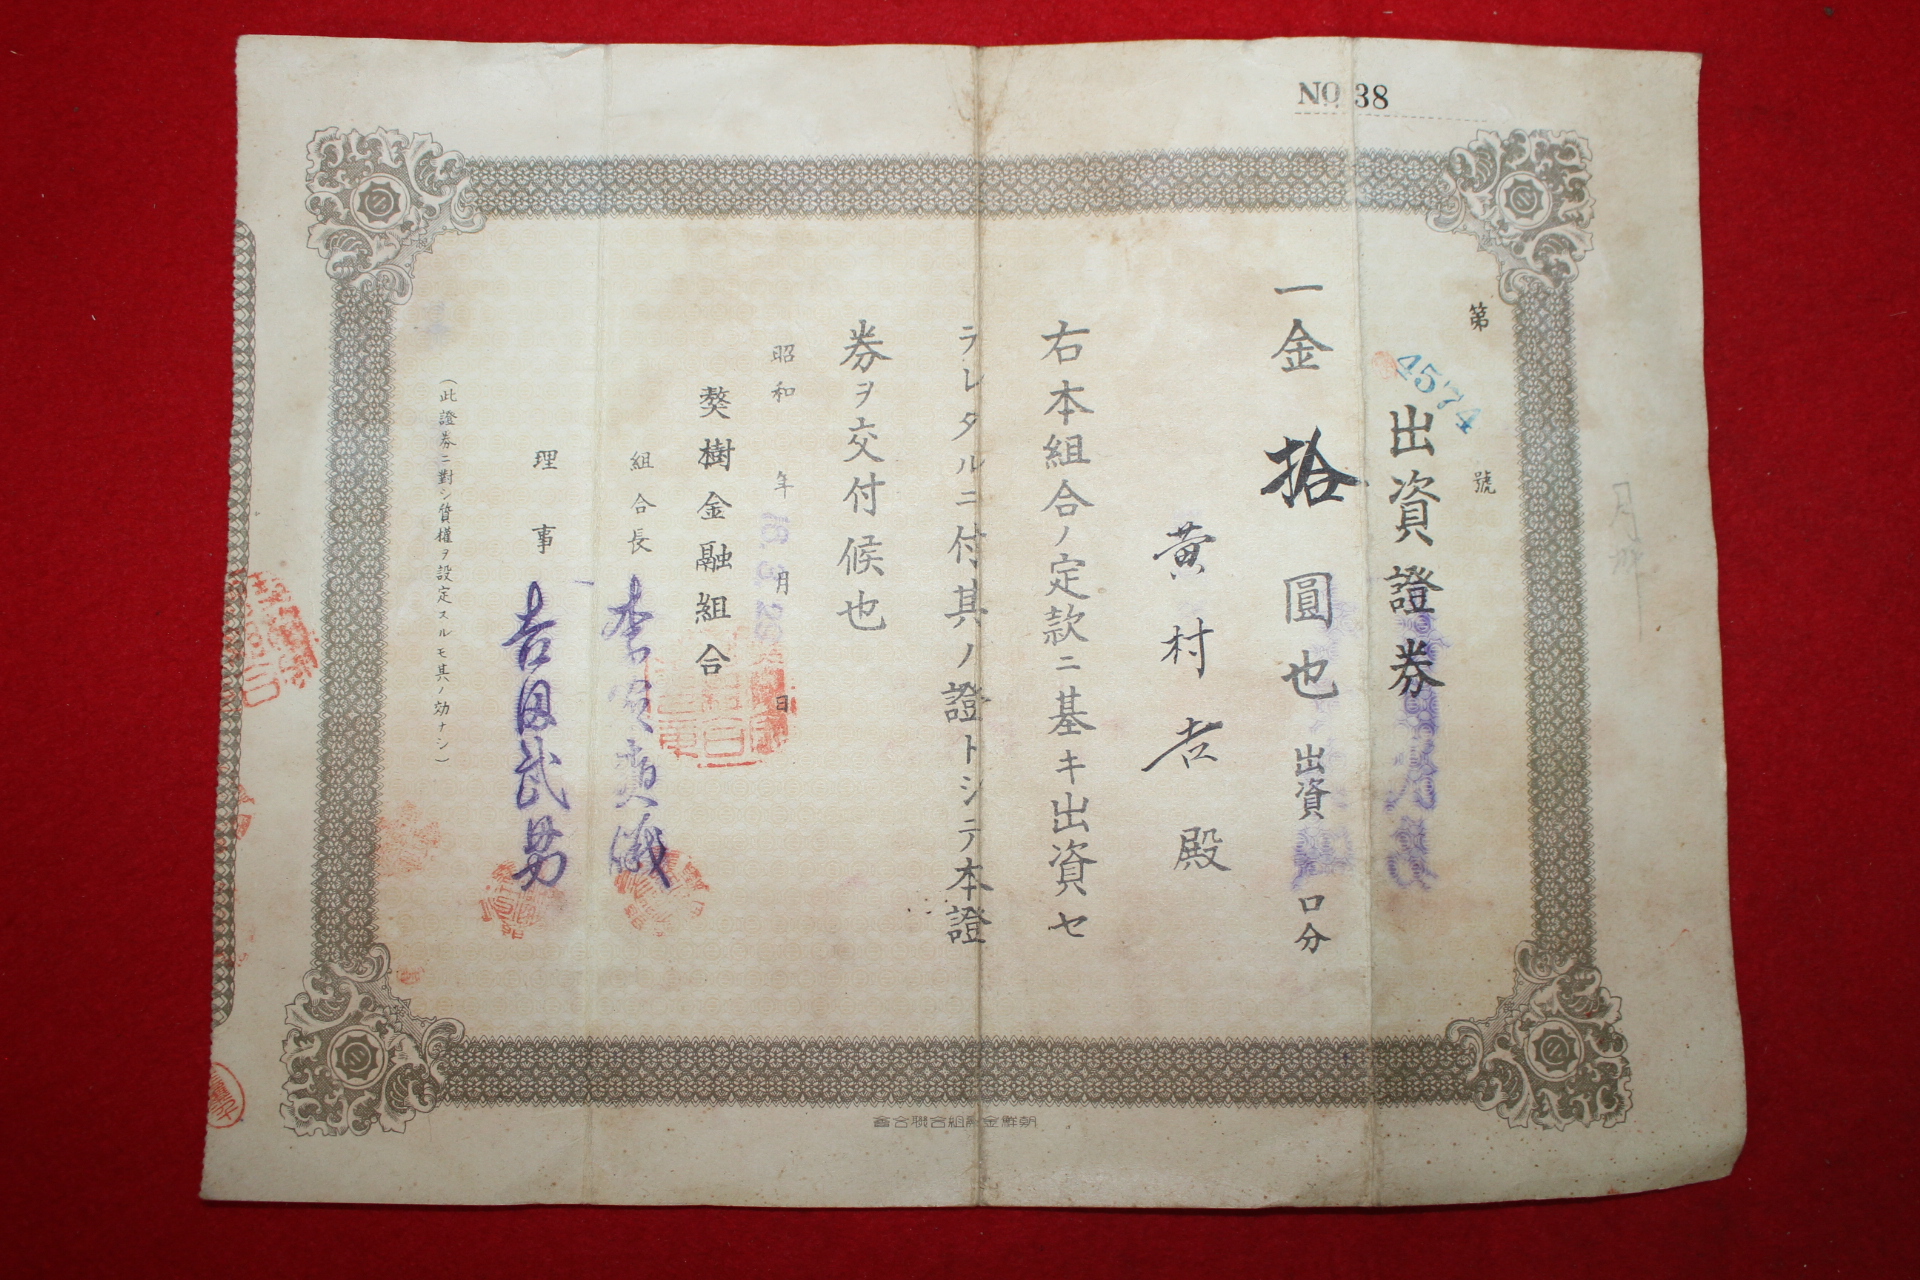 NO 38
第 4574 號
出資證券
一金拾圓也 出資 口分
黄村吉殿
右本組合ノ定款ニ基キ出資セ
ラレタルニ付其ノ證トシテ本證
券ヲ交付候也
昭和 18 年 3 月 29 日
獒樹金融組合
組合長 李
理事 吉田武男
(此證券ニ對シ質權ヲ設定スルモ其ノ効ナシ)
朝鮮金融組合聯合會